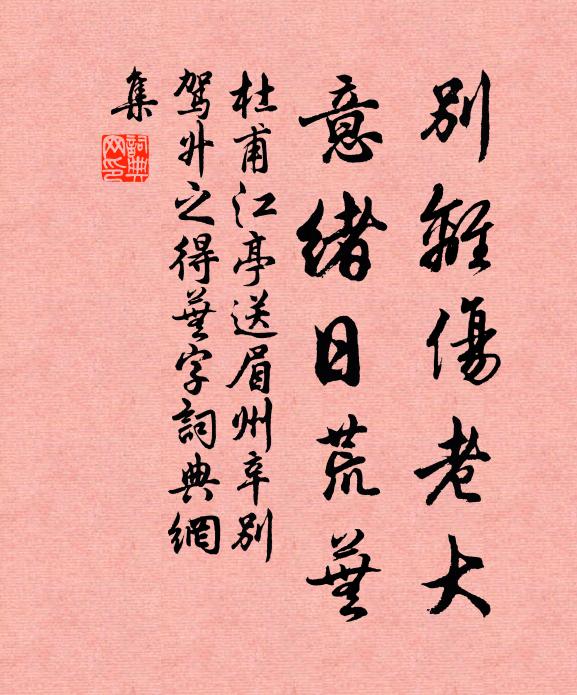 別離傷老大
意緒日荒蕪
杜甫江亭送眉州辛別
駕升之得蕪字詞典網
集
詞典
网印